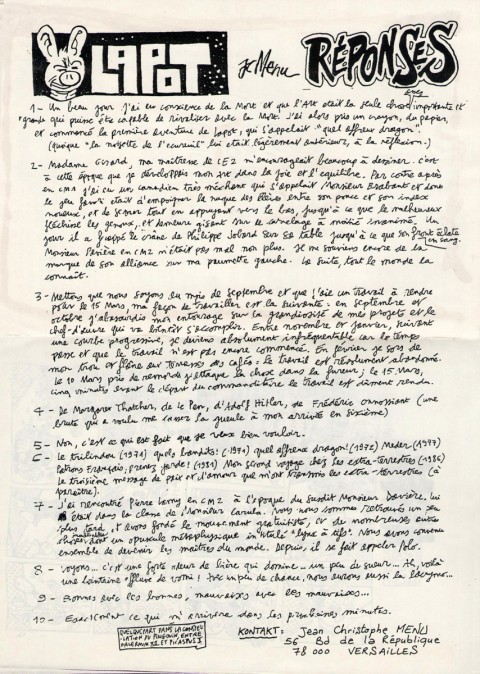 LAPOT
JC Menu
RÉPONSES
1- Un beau jour j'ai eu conscience de la Mort et que l'Art était la seule chose assez importante et
grande qui puisse être capable de rivaliser avec la Mort. J'ai alors pris un crayon, du papier,
et commencé la première aventure de Lapot, qui s'appelait "quel affreux dragon".
(quoique "la noisette de l'écureuil" lui était légèrement antérieur, à la réflexion.)
2- Madame Girard, ma maîtresse de CE2 m'encourageait beaucoup à dessiner. C'est
à cette époque que je développais mon Art dans la joie et l'équilibre. Par contre après
en CM1 j'ai eu un canadien très méchant qui s'appelait Monsieur Erabant et dont
le jeu favori était d'empoigner la nuque des élèves entre son pouce et son index
noueux, et de serrer tout en appuyant vers le bas, jusqu'à ce que le malheureux
fléchisse les genoux, et demeure gisant sur le carrelage à moitié inanimé. Un
jour il a frappé le crâne de Philippe Jobard sur sa table jusqu'à ce que son front éclate
en sang.
Monsieur en CM2 n'était pas mal non plus. Je me souviens encore de la
marque de son alliance sur ma paumette gauche. La suite, tout le monde la
connaît.
3- Mettons que nous soyons au mois de septembre et que j'aie un travail à rendre
pour le 15 Mars, ma façon de travailler est la suivante: en septembre et
octobre j'abasourdis mon entourage sur la grandiosité de mes projets et le
chef-d'œuvre qui va bientôt s'accomplir. Entre novembre et janvier, suivant
une courbe progressive, je deviens absolument infréquentable car le temps
passe et que le travail n'est pas encore commencé. En février je sors de
mon trou et flâne aux terrasses des cafés: le travail est résolument abandonné.
Le 10 Mars pris de remords j'attaque la chose dans la fureur; le 15 Mars,
cinq minutes avant le départ du commanditaire le travail est dûment rendu.
4- De Margaret Thatcher, de le Pen, d'Adolf Hitler, de Frédéric (une
brute qui a voulu me casser la gueule à mon arrivée en sixième)
5- Non, c'est ce qui est fait que je veux bien vouloir.
6- Le trulindon (1971) quels bandits! (1971) quel affreux dragon! (1972) Meder (1947)
Patrons Français, prenez garde! (1981) Mon second voyage chez les extra-terrestres (1986)
Le troisième message de paix et d'amour que m'ont transmis les extra-terrestres (à
paraître).
7- J'ai rencontré Pierre en CM2 à l'époque du susdit Monsieur. Lui
était dans la classe de Monsieur Carula. Nous nous sommes retrouvés un peu
plus tard, et avons fondé le mouvement gratuitiste, et de nombreuses autres
choses dont un opuscule métaphysique inintitulé "Lapot a tifs". Nous avons convenu
ensemble de devenir les maîtres du monde. Depuis, il se fait appeler Polo.
8- Voyons... c'est une forte odeur de bière qui domine... un peu de sueur... Ah, voilà
une lointaine effluve de vomi! Avec un peu de chance, nous aurons aussi la lacrymo...
9- Bonnes avec les bonnes, mauvaises avec les mauvaises...
10- Exactement ce qui m'arrivera dans les prochaines minutes.
QUELQUEPART DANS LA CONSTEL
LATION DU PINGOUIN, ENTRE
ET PICASSUS I
KONTAKT: Jean Christophe MENU
56 Bd de la République
78 000 VERSAILLES